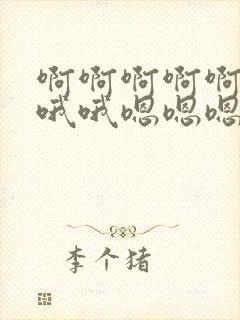 啊啊啊啊啊
哦哦嗯嗯嗯
李个猪